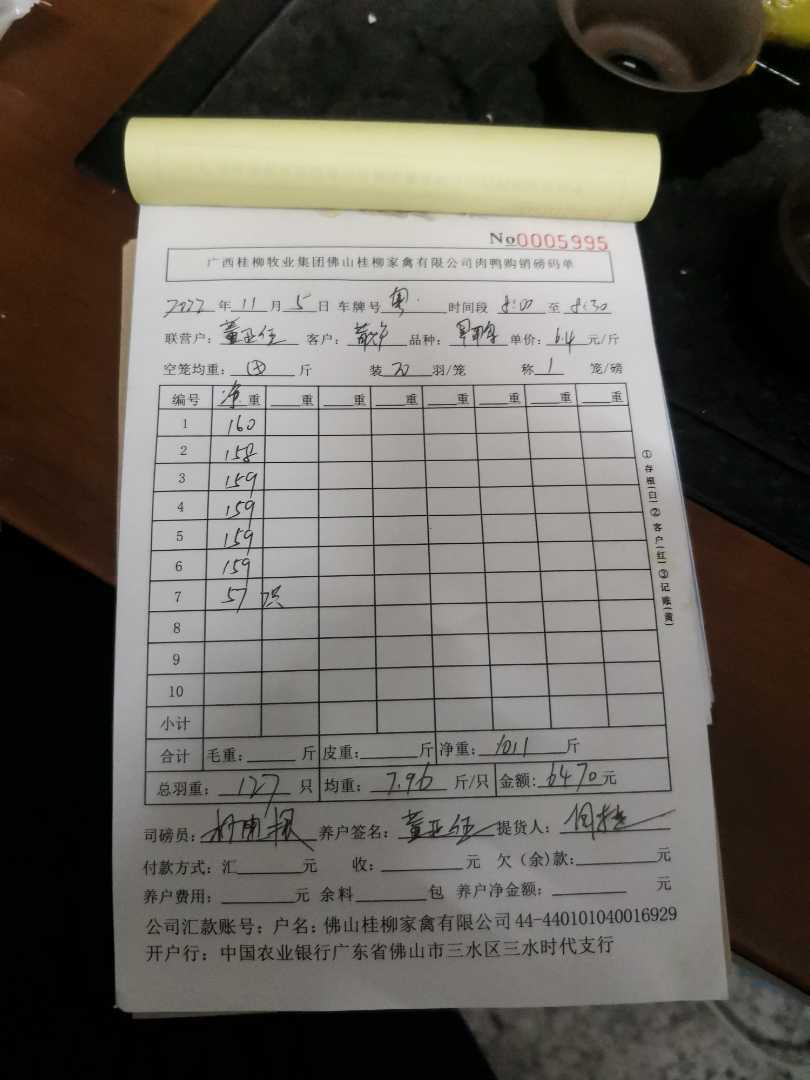 No0005995
广西桂柳牧业集团佛山桂柳家禽有限公司肉鸭购销磅码单
2022 年 11 月 5 日 车牌号 粤· 时间段 8:00 至 8:30
联营户: 董亚伍 客户: 品种: 单价: 6.4 元/斤
空笼均重: 斤 装 20 羽/笼 称 1 笼/磅
编号 净重 重 重 重 重 重 重 重
1 160
2 158
3 159
4 159
5 159
6 159
7 57 7只
8
9
10
小计
合计 毛重: 斤 皮重: 斤 净重: 1011 斤
总羽重: 127 只 均重: 7.96 斤/只 金额: 6470 元
司磅员: 养户签名: 董亚伍 提货人:
付款方式: 汇 元 收: 元 欠(余)款: 元
养户费用: 元 余料 包 养户净金额: 元
公司汇款账号: 户名: 佛山桂柳家禽有限公司 44-440101040016929
开户行: 中国农业银行广东省佛山市三水区三水时代支行
①存根(白)②客户(红)③记账(黄)